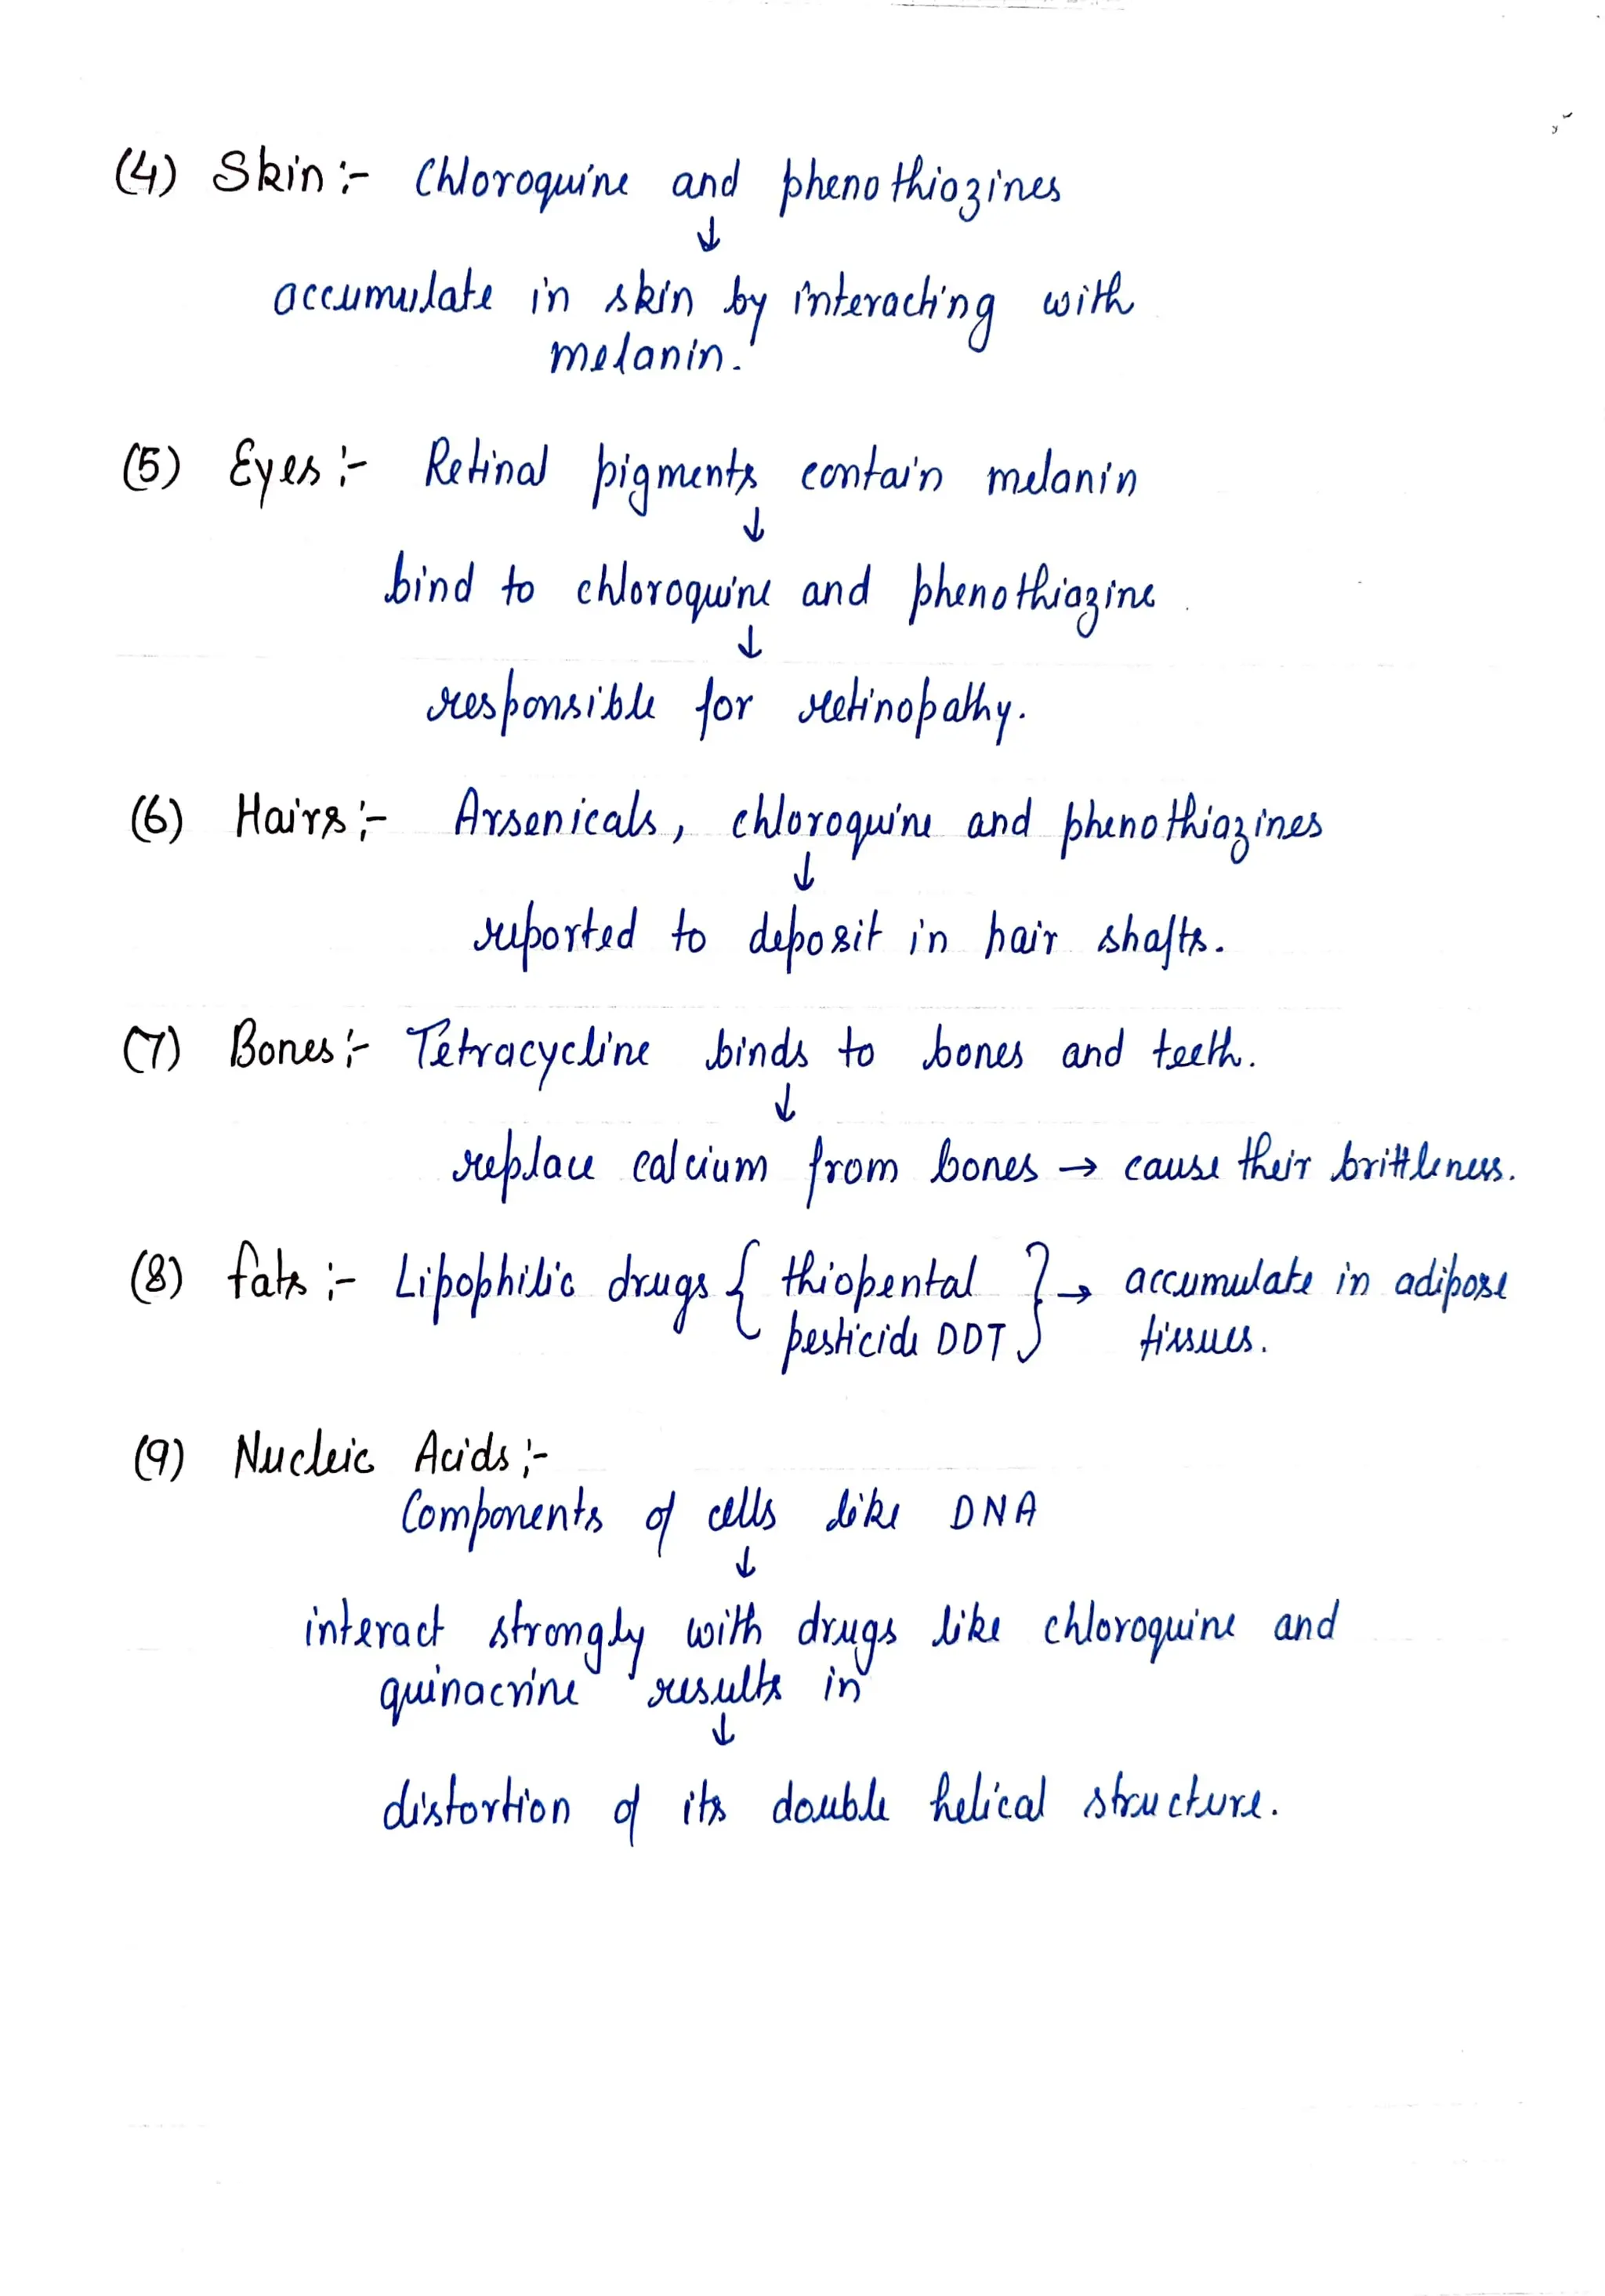 (4) Skin :- Chloroquine and phenothiozines
↓
accumulate in skin by interacting with
melanin.
(5) Eyes :- Retinal pigments contain melanin
↓
bind to chloroquine and phenothiazine
↓
responsible for retinopathy.
(6) Hairs :- Arsenicals, chloroquine and phenothiazines
↓
reported to deposit in hair shafts.
(7) Bones :- Tetracycline binds to bones and teeth.
↓
replace calcium from bones → cause their brittleness.
(8) fats :- Lipophilic drugs { thiopental } → accumulate in adipose
pesticide DDT tissues.
(9) Nucleic Acids :-
Components of cells like DNA
↓
interact strongly with drugs like chloroquine and
quinacrine results in
↓
distortion of its double helical structure.